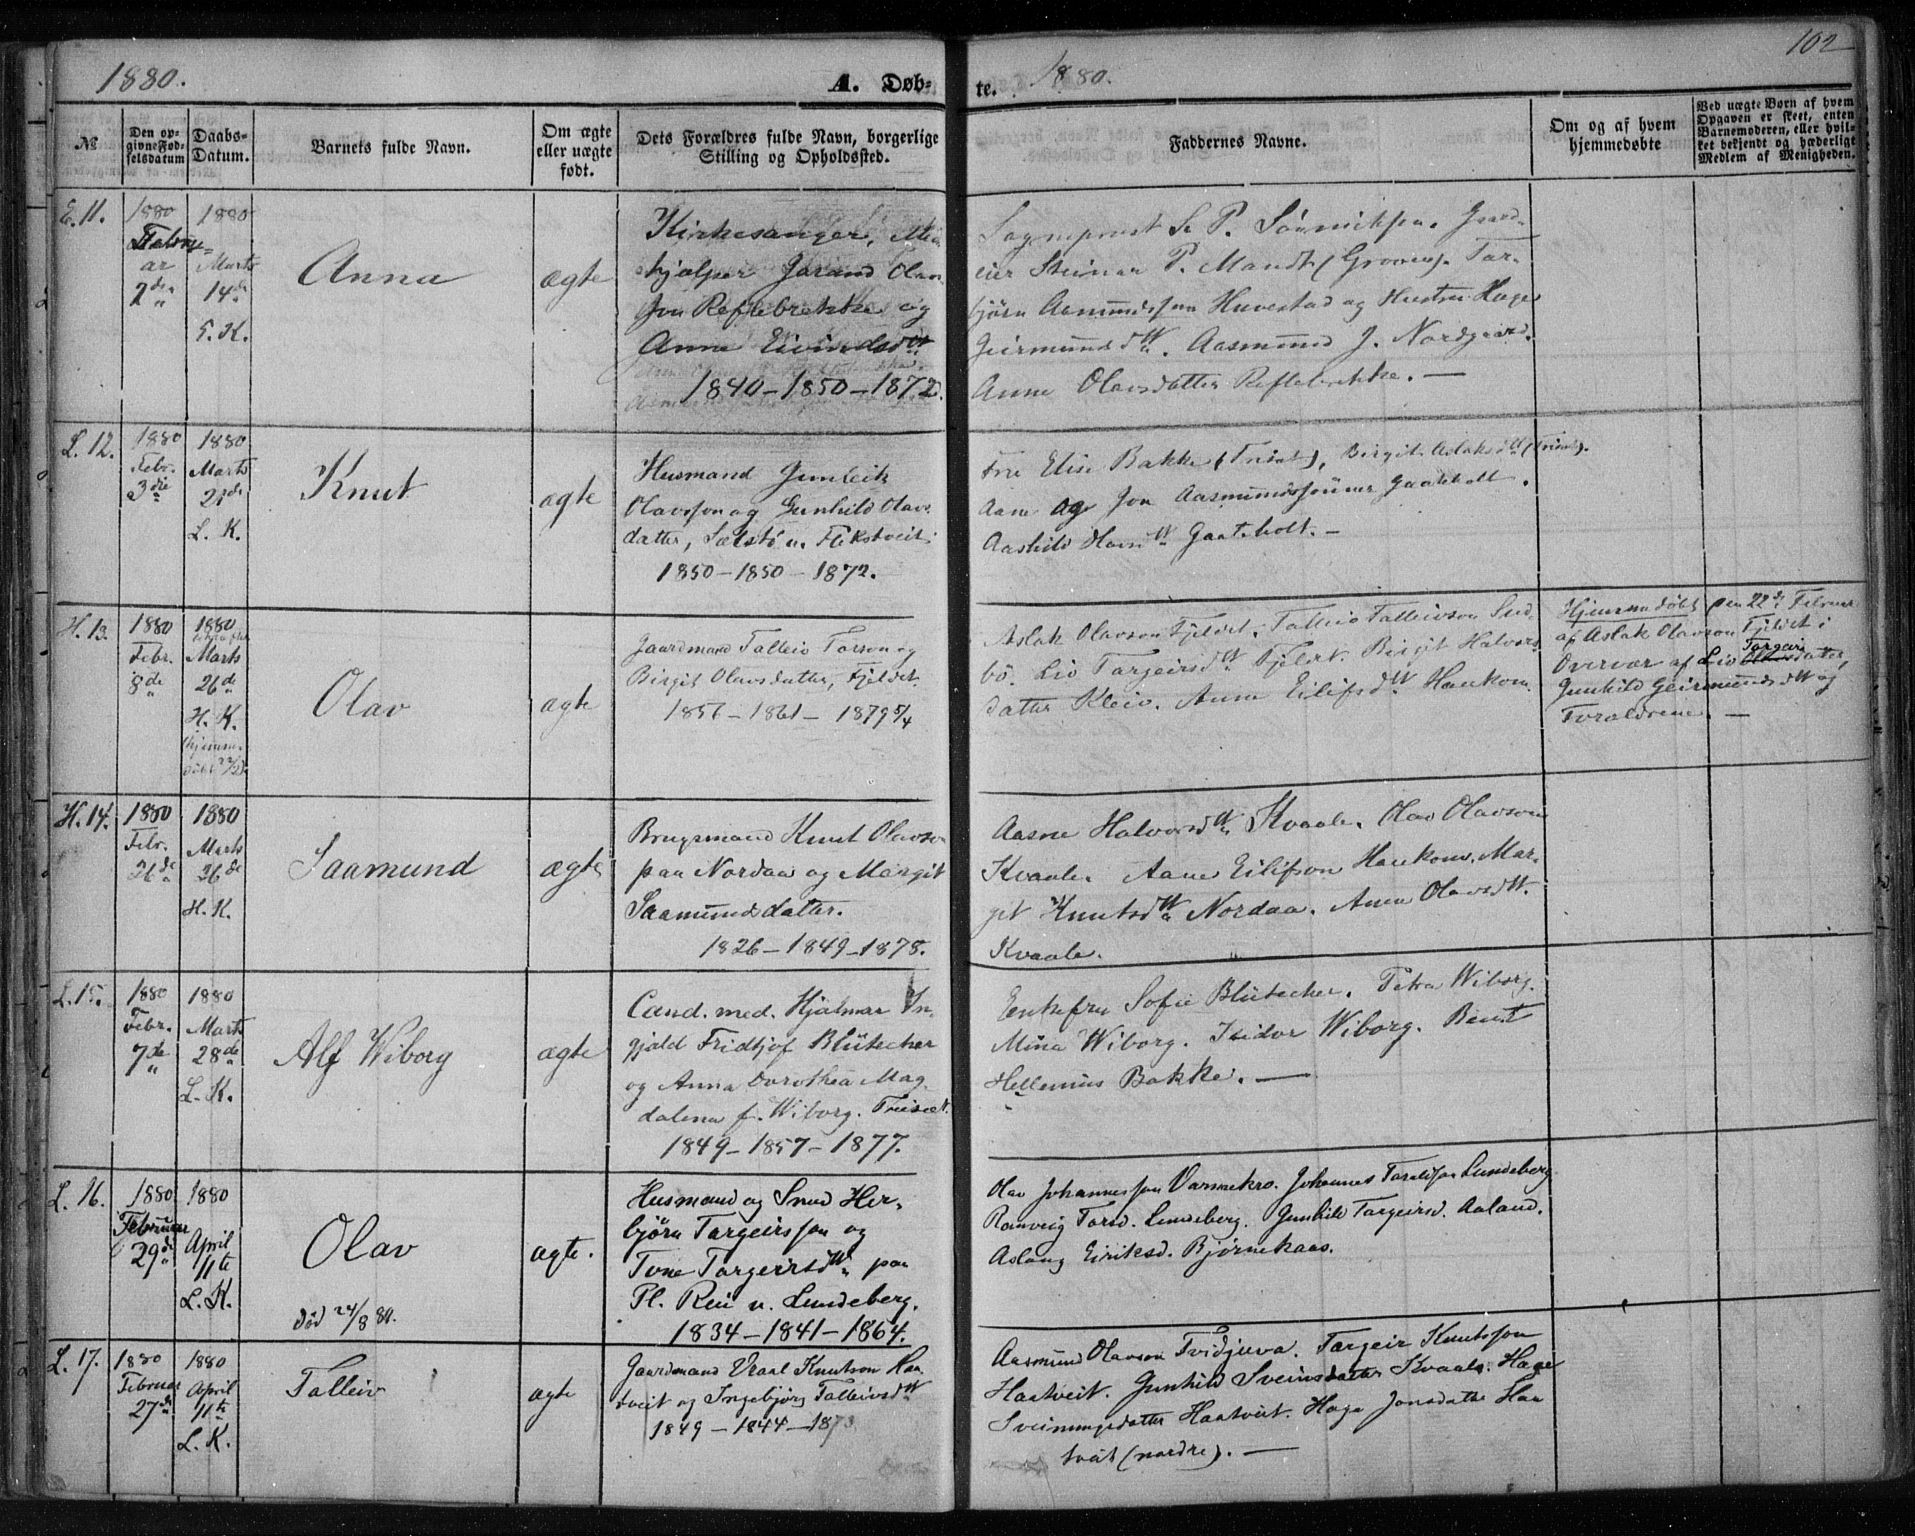 1880.
A. Døb-
te.
1880.
102
№
Den op-
givne Fød-
selsdatum
Daabs-
Datum.
Barnets fulde Navn.
Om ægte
eller uægte
født.
Dets Forældres fulde Navn, borgerlige
Stilling og Opholdssted.
Faddernes Navne.
Om og af hvem
hjemmedøbte
Ved uægte Børn af hvem
Opgaven er skeet, enten
Barnemoderen, eller hvil-
ket bekjendt og hæderligt
Medlem af Menigheden.
E. 11.
1880
Februar
2den
1880
Marts
14de
Anna
ægte
Kirkesanger,
hjælper Jørand Olav-
son Reflebrekke og
Anne Eivindsdtr
1840-1850-1872.
Sogneprest P. Gaard-
eier Steinar P. Mandt (Groven). Tar-
bjørn Aasmundsson Huvestad og Hustru Hæge
Geirmundsdtr. Aasmund J. Nordgaard.
Anne Olavsdatter Reflebrekke. —
L. 12.
1880
Febr.
3die
1880
Marts
21de
L. K.
Knut
ægte
Husmand Gunleik
Olavsson og Gunhild Olavs-
datter, u. Flekstveit.
1850-1850-1872.
Frue Elise Bakke (Triset), Birgit Aslaksdtr (Triset).
Aane og Jon Aasmundssønner Gaaseholt.
Aashild dtr
H. 13.
1880
Febr.
8de
1880
Marts
26de
H. K.
(hjemme-
døbt 22/2
Olav
ægte
Gaardmand Talleiv Torson og
Birgit Olavsdatter, Fjeldet.
1857-1861-1879 5/4
Aslak Olavson Fjeldet. Talleiv Talleivson Sud-
bø. Liv Targeirsdtr Fjeldet. Birgit Halvors-
datter Kleiv. Anne Eilifsdtr Haukom.
Hjemmedøbt den 22de Februar
af Aslak Olavson Fjeldet i
Targeirs
Overvær af Liv datter,
Gunhild Geirmundsdtr og
Forældrene. —
H. 14.
1880
Febr.
26de
1880
Marts
26de
H. K.
Saamund
ægte
Brugsmand Knut Olavson
paa Nordaa og Margit
Saamundsdatter.
1826-1849-1878.
Aasne Halvorsdtr Kvaale. Olav Olavson
Kvaale. Aane Eilifson Haukom. Mar-
git Knutsdtr Nordaa. Anne Olavsdtr.
Kvaale.
L. 15.
1880
Febr.
7de
1880
Marts
28de
L. K.
Alf Wiborg
ægte
Cand. med. Hjalmar In-
gjald Fridtjof Blütecher
og Anna Dorothea Mag-
dalena f. Wiborg. Triset.
1849-1857-1877.
Enkefru Sofie Blütecher. Petra Wiborg.
Mina Wiborg. Isidor Wiborg. Bent
Hellenius Bakke. —
L. 16.
1880
Februar
29de
1880
April
11te
L. K.
Olav
død 24/8 80.
ægte.
Husmand og Smed Her-
bjørn Targeirsson og
Tone Targeirsdtr paa
Pl. Rui u. Lundeberg.
1834-1841-1864.
Olav Johannesson Vammekro. Johannes Lundeberg
Ranveig Torsd. Lundeberg. Gunhild Targeirsd. Aaland.
Aslaug Eiriksd. Bjørnekaas.
L. 17.
1880
Februar
27de
1880
April
11te
L. K.
Talleiv
ægte
Gaardmand Vraal Knutson Haa-
tveit og Ingebjørg Talleivsdtr
1849-1844-1873
Aasmund Olavson Tvidjuva. Targeir Knutsson
Haatveit. Gunhild Sveinsdatter Kvaale. Hæge
Sveinungsdatter Haatveit. Hæge Jonsdatter Haa-
tveit (nordre). —